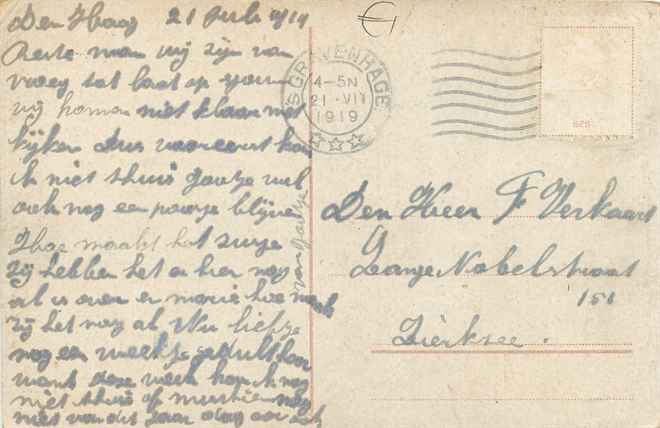 Den Haag 21 Juli 1919
Beste man wij zijn van
vroeg tot laat op
wij komen niet klaar met
kijken Dus voor eerst kom
ik niet thuis Jaatje wil
ook nog een poosje blijven
Hoe maakt het
Zij hebben het er hier nog
al is over en marie hoe maak
zij het nog al Nu liefje
nog een weekje gedult hoor
want deze week kom ik nog
niet thuis of mischien nog
niet van dit jaar dag
van Jaatje
'S GRAVENHAGE
4-5N
21 VII
1919
Den Heer F Verkaart
Lange Nobelstraat
151
Zierksee.